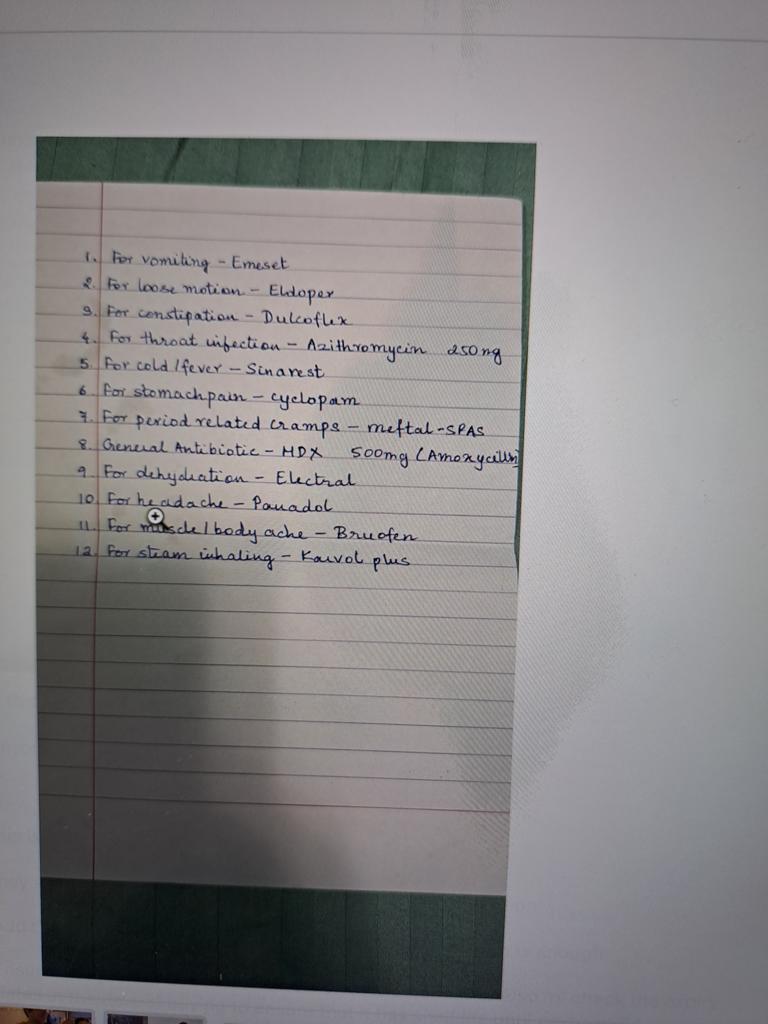 1. For vomiting - Emeset
2. For loose motion - Eldoper
3. For constipation - Dulcoflex
4. For throat infection - Azithromycin 250 mg
5. For cold/fever - Sinarest
6. For stomachpain - cyclopam
7. For period related cramps - meftal-SPAS
8. General Antibiotic - MDX 500mg (Amoxycillin)
9. For dehydration - Electral
10. For headache - Panadol
11. For muscle/body ache - Bruofen
12. For steam inhaling - Karvol plus